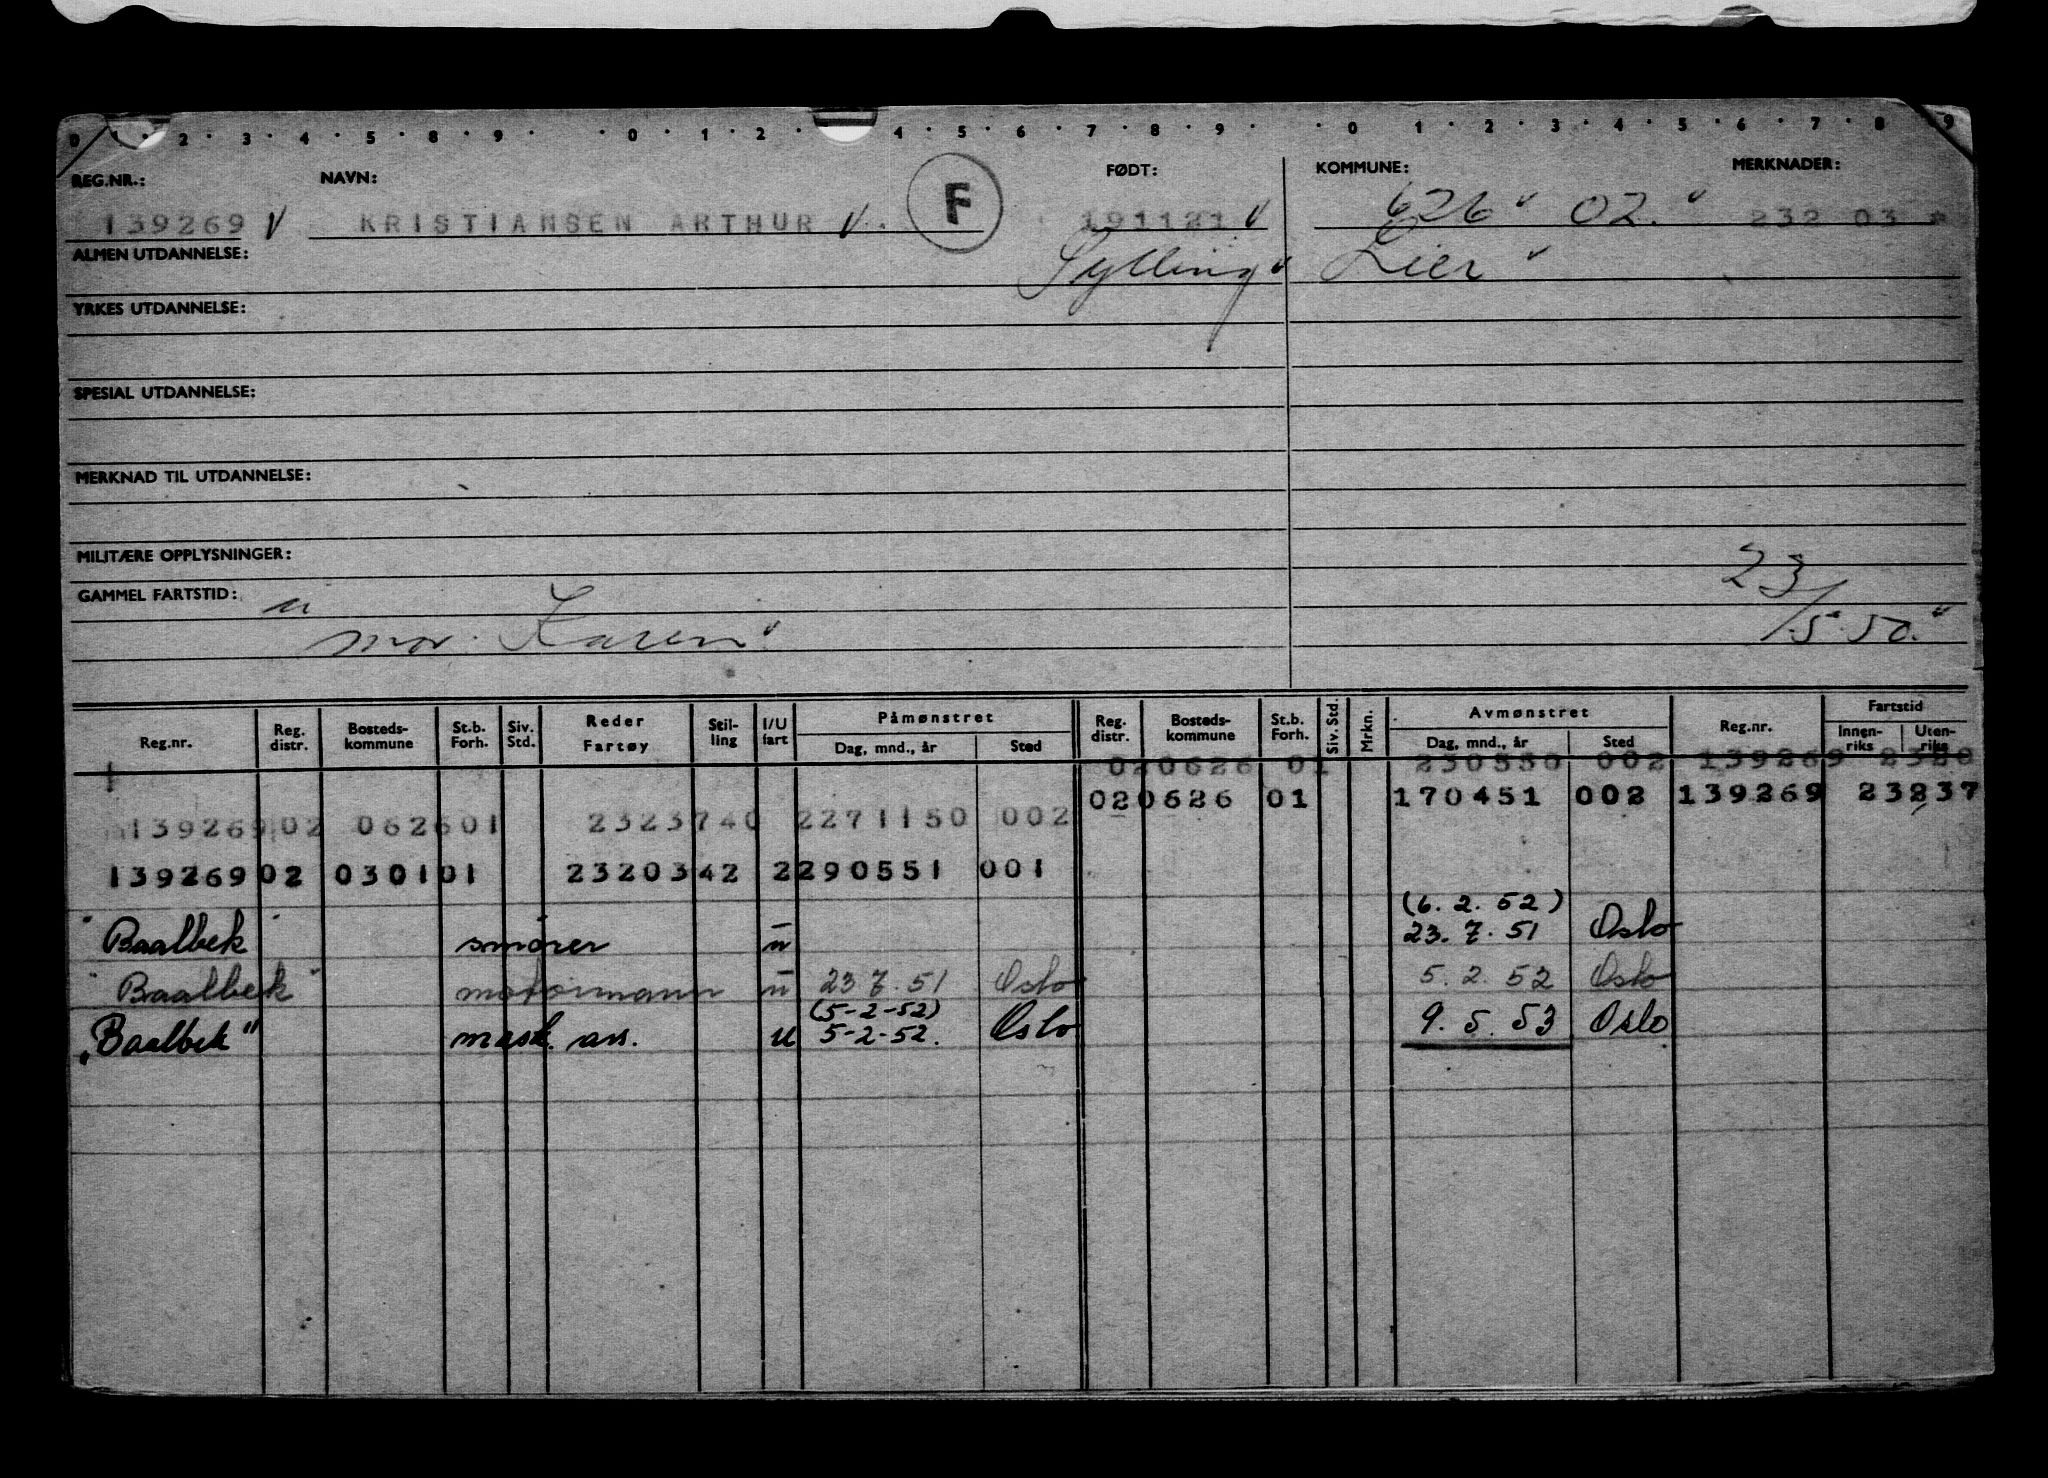 0 · 1 · 2 · 3 · 4 · 5 · 8 · 9 · · 0 · 1 · 2 · 4 · 5 · 6 · 7 · 8 · 9 · · 0 · 1 · 2 · 3 · 4 · 5 · 6 · 7 · 8 · 9
REG.NR.: NAVN: F FØDT: KOMMUNE: MERKNADER:
139269 KRISTIANSEN ARTHUR 191121 626 02. 232 03
ALMEN UTDANNELSE: Sylling Lier
YRKES UTDANNELSE:
SPESIAL UTDANNELSE:
MERKNAD TIL UTDANNELSE:
MILITÆRE OPPLYSNINGER:
GAMMEL FARTSTID: 23/5.50.
mor. Karen
Reg.nr. Reg. distr. Bosteds-kommune St.b. Forh. Siv. Std. Reder Fartøy Stil-ling I/U fart Påmønstret Dag, mnd., år Sted Reg. distr. Bosteds-kommune St.b. Forh. Siv. Std. Mrkn. Avmønstret Dag, mnd., år Sted Reg.nr. Fartstid Innen-riks Uten-riks
020626 01 230550 002 139269 2328
020626 01 170451 002 139269 23237
139269 02 062601 2323740 2271150 002
139269 02 030101 2320342 2290551 001
(6. 2. 52)
"Baalbek" smører u 23. 7. 51 Oslo
"Baalbek" motormann u 23 7. 51 Oslo 5. 2. 52 Oslo
(5-2-52)
"Baalbek" mask. ass. u 5-2-52. Oslo 9. 5. 53 Oslo